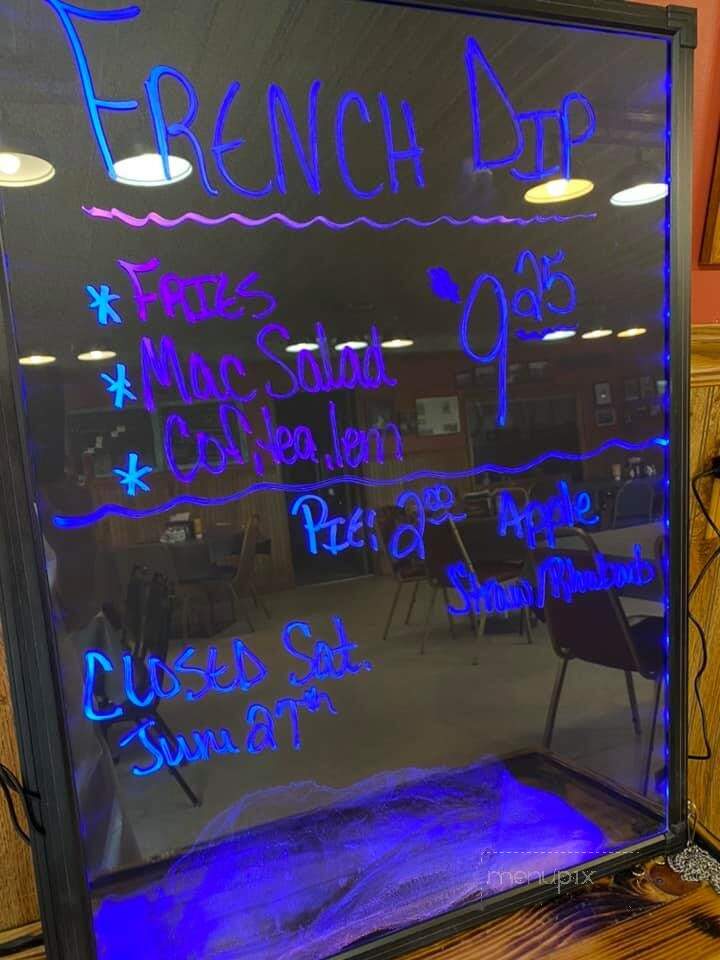 FRENCH DIP
* FRIES
$9.25
* Mac Salad
* Cof, tea, lem
PIE: 2.00 Apple
Straw/Rhubarb
CLOSED Sat.
June 27th
menupix